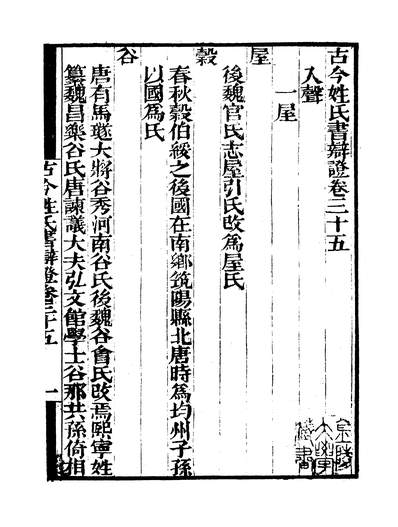 古今姓氏書辯證卷三十五
入聲
一屋
屋
後魏官氏志屋引氏改爲屋氏
穀
春秋穀伯綏之後國在南鄉筑陽縣北唐時爲均州子孫
以國爲氏
谷
唐有馬璲大將谷秀河南谷氏後魏谷會氏改焉熙寧姓
纂魏昌樂谷氏唐諫議大夫弘文館學士谷那共孫倚相
古今姓氏書辯證卷三十五
一